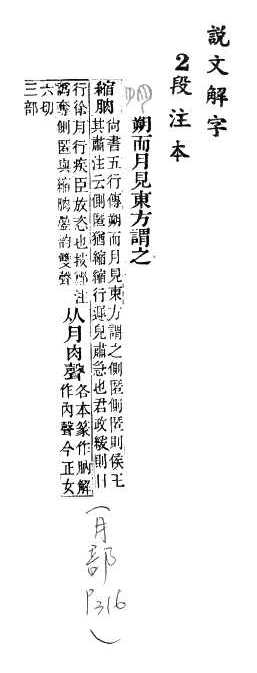 說文解字
2段注本
朔而月見東方謂之
縮朒
尚書五行傳朔而月見東方謂之側匿側匿則侯王
其肅注云側匿猶縮縮行遲皃肅急也君政緩則日
行徐月行疾臣放恣也按鄭注
譌奪側匿與縮朒曡韵雙聲
从月肉聲
各本篆作朒解
作內聲今正女
六切
三部
(月部P316)